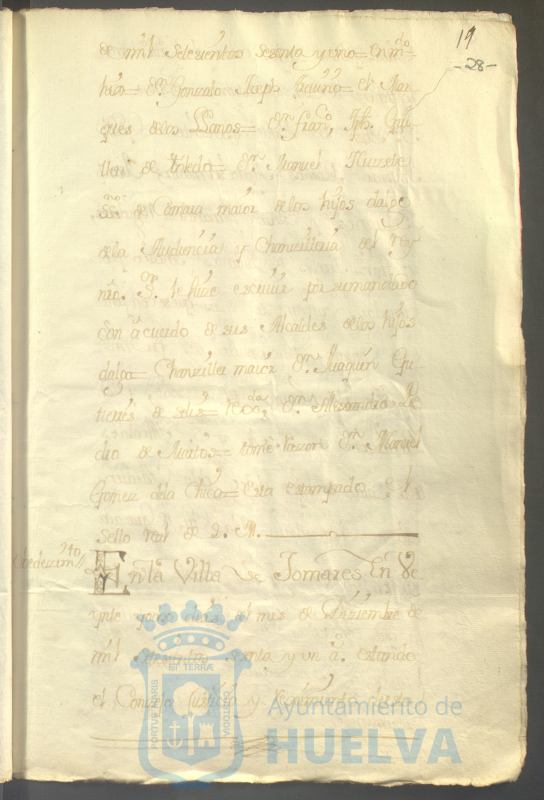 19
-28-
de mil setezientos sesenta y uno = en mdo
hizo = Dn. Gonzalo Joseph Treuiño = el Mar
ques de los Llanos = Dn. Franco, Jph. Gu
de Toledo = Dn. Manuel
SSno. de Camara maior de los hijos dalgo
de la Audiencia y Chanzilleria del Rey
nro. Sor. le hize escriuir por su mandado
con acuerdo de sus Alcaldes de los hijos
dalgo = Chanziller maior Dn. Juaquin Gu
tierres de = Dn. Alexandro
de = tomè razon Dn. Manuel
Gomez dela Chica = Esta estampado el
Sello real de S. M.
Obedezimto
En la Villa de Tomares en Ve
ynte y dias del mes de Diziembre de
mil setezientos sesenta y un as. estando
el Conzejo Justicia y Regimiento desta
PORTVS MARIS
ET TERRÆ
CVSTODIA
Ayuntamiento de
HUELVA